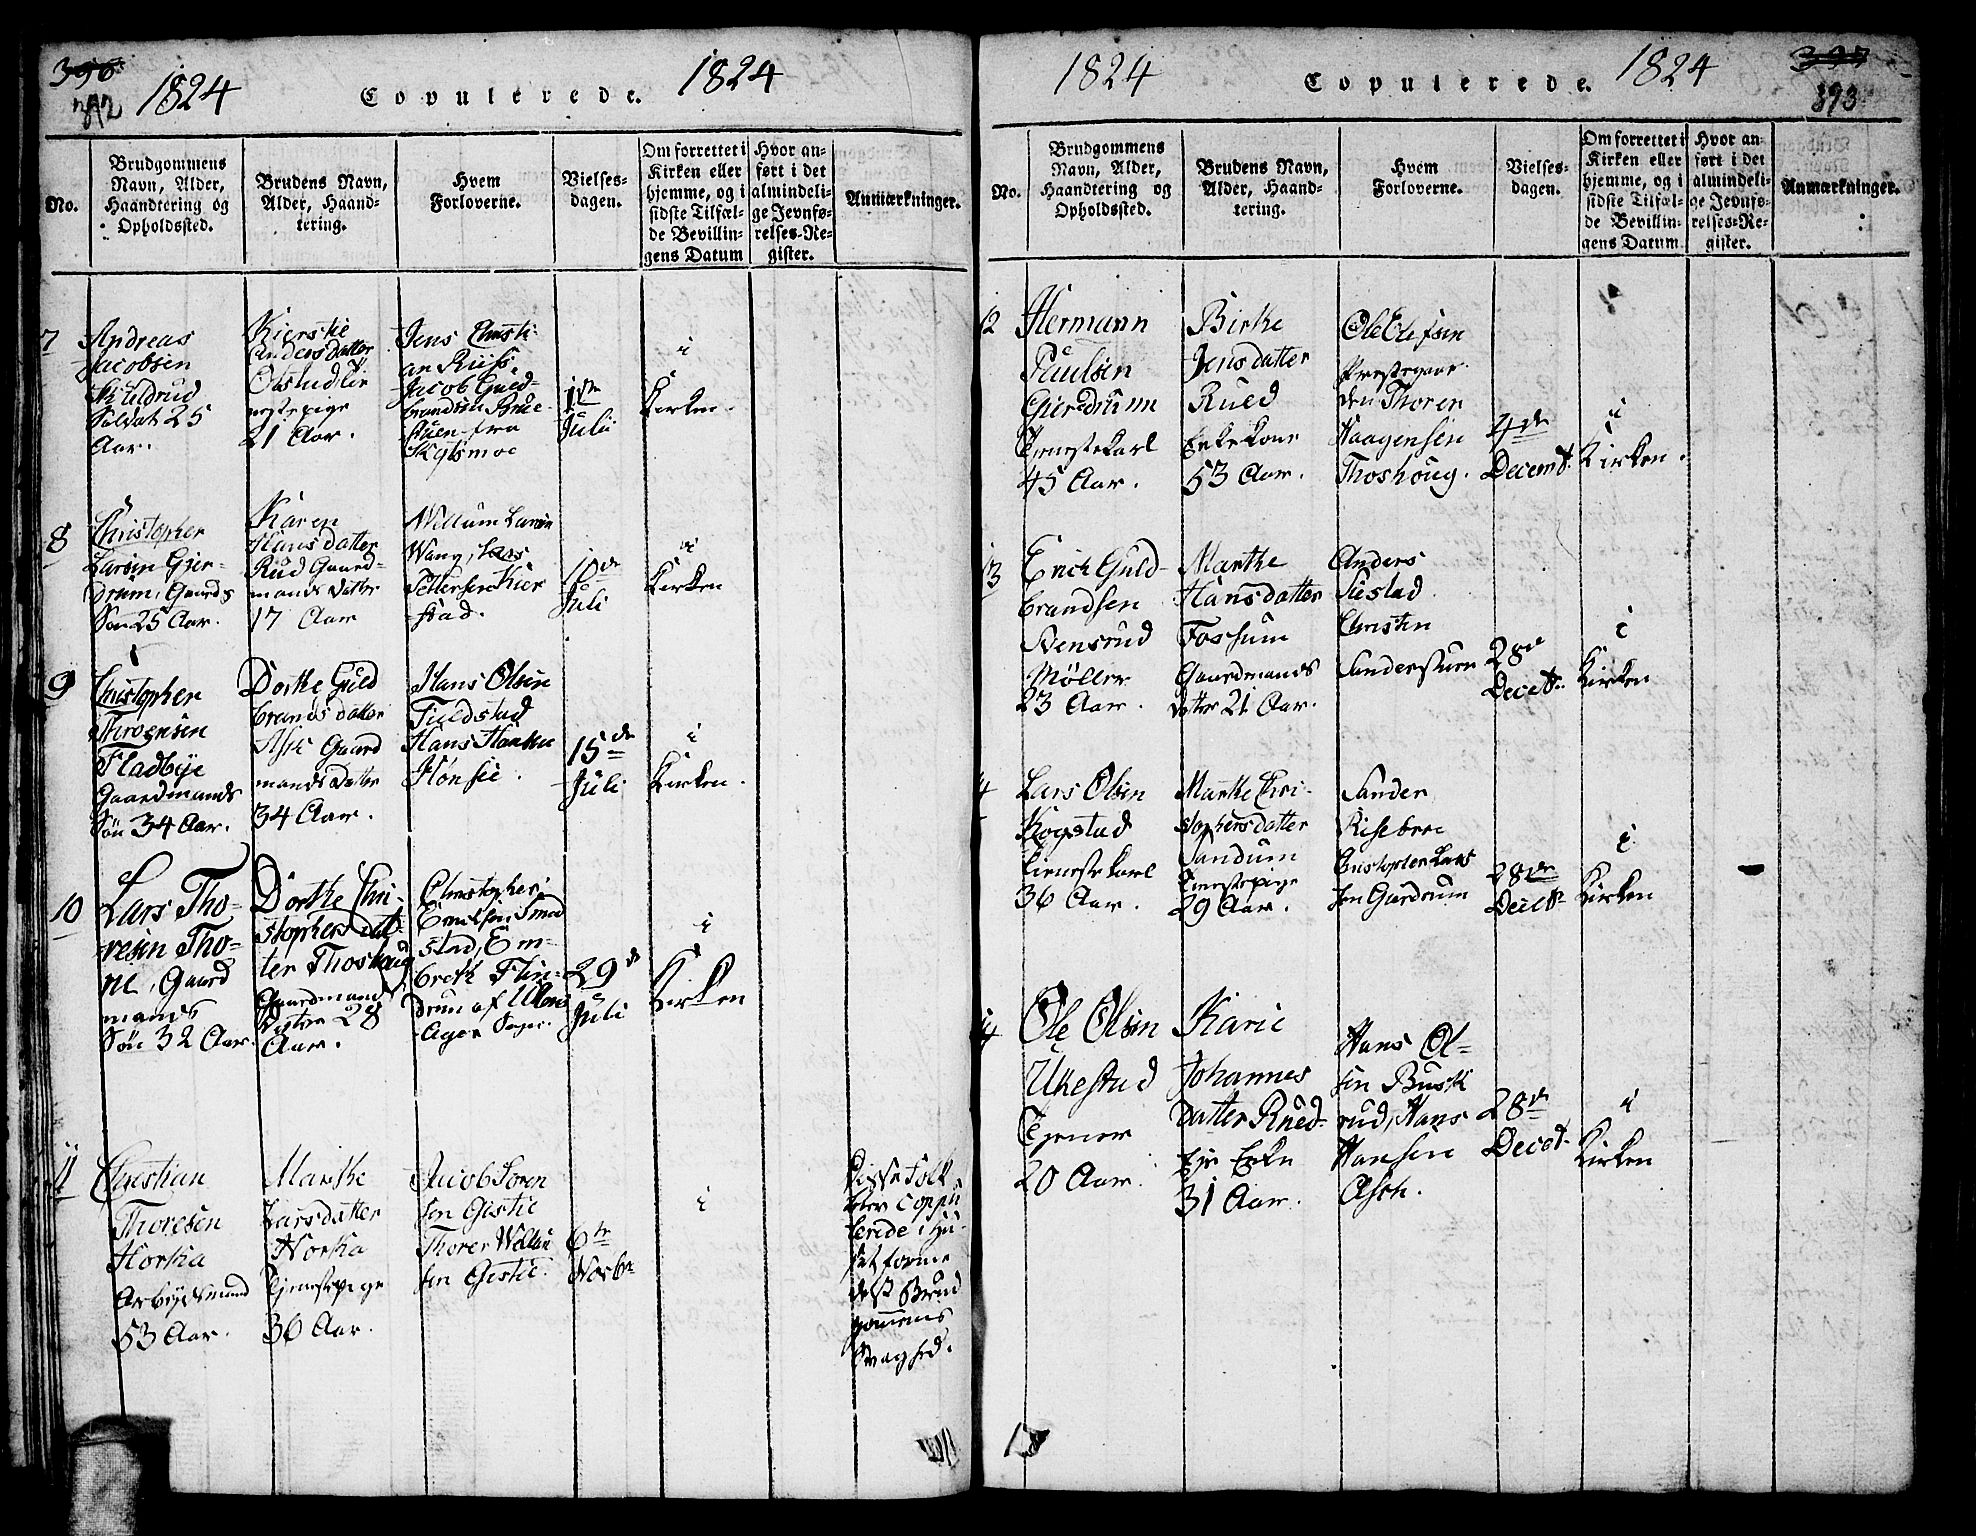 396
392
1824
Copulerede.
1824
No.
Brudgommens
Navn, Alder,
Haandtering og
Opholdssted.
Brudens Navn,
Alder, Haand-
tering.
Hvem
Forloverne.
Vielses-
dagen.
Om forrettet i
Kirken eller
hjemme, og i
sidste Tilfæl-
de Bevillin-
gens Datum
Hvor an-
ført i det
almindeli-
ge Jevnfø-
relses-Re-
gister.
Anmærkninger.
7
Andreas
Jacobsen
Soldat 25
Aar.
Kierstie
Andersdatter
21 Aar.
Jens Christi-
an Riis.
Jacob Guld-
brandsen
fra
Skytsmoe
1ste
Julii
i
Kirken.
8
Christopher
Larsen Gjer-
drum, Gaards
Søn 25 Aar.
Karen
Hansdatter
Rud Gaard-
mands Datter
17 Aar
Willum Larsen
Wang, Lars
Pettersen Kier
stad.
Juli
i
Kirken
9
Christopher
Thrognsen
Fladbye
Gaardmands
Søn 34 Aar.
Dorthe Guld
brands datter
Ask Gaard
mands Datter
34 Aar.
Hans Olsen
Tuldstad
Hans Hansen
Hønsie.
15de
Juli
i
Kirken.
10
Lars Tho-
resen Tho-
ne, Gaard
mands
Søn 32 Aar.
Dorthe Chri-
stophers dat-
ter Thoshaug
Gaardmands
Datter 28
Aar.
Christopher
stad, Em-
breth Flin-
drum af Ullens
Ager Sogn.
29de
Juli
i
Kirken
11
Christian
Thoresen
Horka
Arbeydsmand
53 Aar.
Marthe
Larsdatter
Horka
Tjenestepige
36 Aar.
Jacob Soren
sen Gistie
Thorer Willum
sen Gistie.
6te
Novbr
i
Disse Folk
blev Copu
lerede i Hu-
set forme
delst Brud
gommens
Svaghed.
1824
Copulerede.
1824
397
393
No.
Brudgommens
Navn, Alder,
Haandtering og
Opholdssted.
Brudens Navn,
Alder, Haand-
tering.
Hvem
Forloverne.
Vielses-
dagen.
Om forrettet i
Kirken eller
hjemme, og i
sidste Tilfæl-
de Bevillin-
gens Datum
Hvor an-
ført i det
almindeli-
ge Jevnfø-
relses-Re-
gister.
Anmærkninger.
12
Hermann
Paulsen
Gjerdrum
Tjenestekarl
45 Aar.
Birthe
Jensdatter
Rued
Enkekone
53 Aar.
Ole Olefsen
Præstegaar
den Thorer
Haagensen
Thoshoug.
4de
Decembr.
i
Kirken.
13
Erich Guld-
brandsen
Stensrud
Møller
23 Aar.
Marthe
Hansdatter
Fossum
Gaardmands
datter 21 Aar.
Anders
Sulstad
Christen
28de
Decebr.
i
Kirken
4
Lars Olsen
Kogstad
tienestekarl
36 Aar.
Marthe Chri-
stophersdatter
Sandum
Tienestepige
29 Aar.
Sander
Risebroe
Christopher Lars
sen Gierdrum
28de
Decebr.
i
Kirken
14
Ole Olsen
Ukestad
Tjener
20 Aar.
Karie
Johannes
datter Rued-
Eje Enke
31 Aar.
Hans Ol-
sen Busk
rud, Hans
Hansen
Asch.
28de
Decebr.
i
Kirken